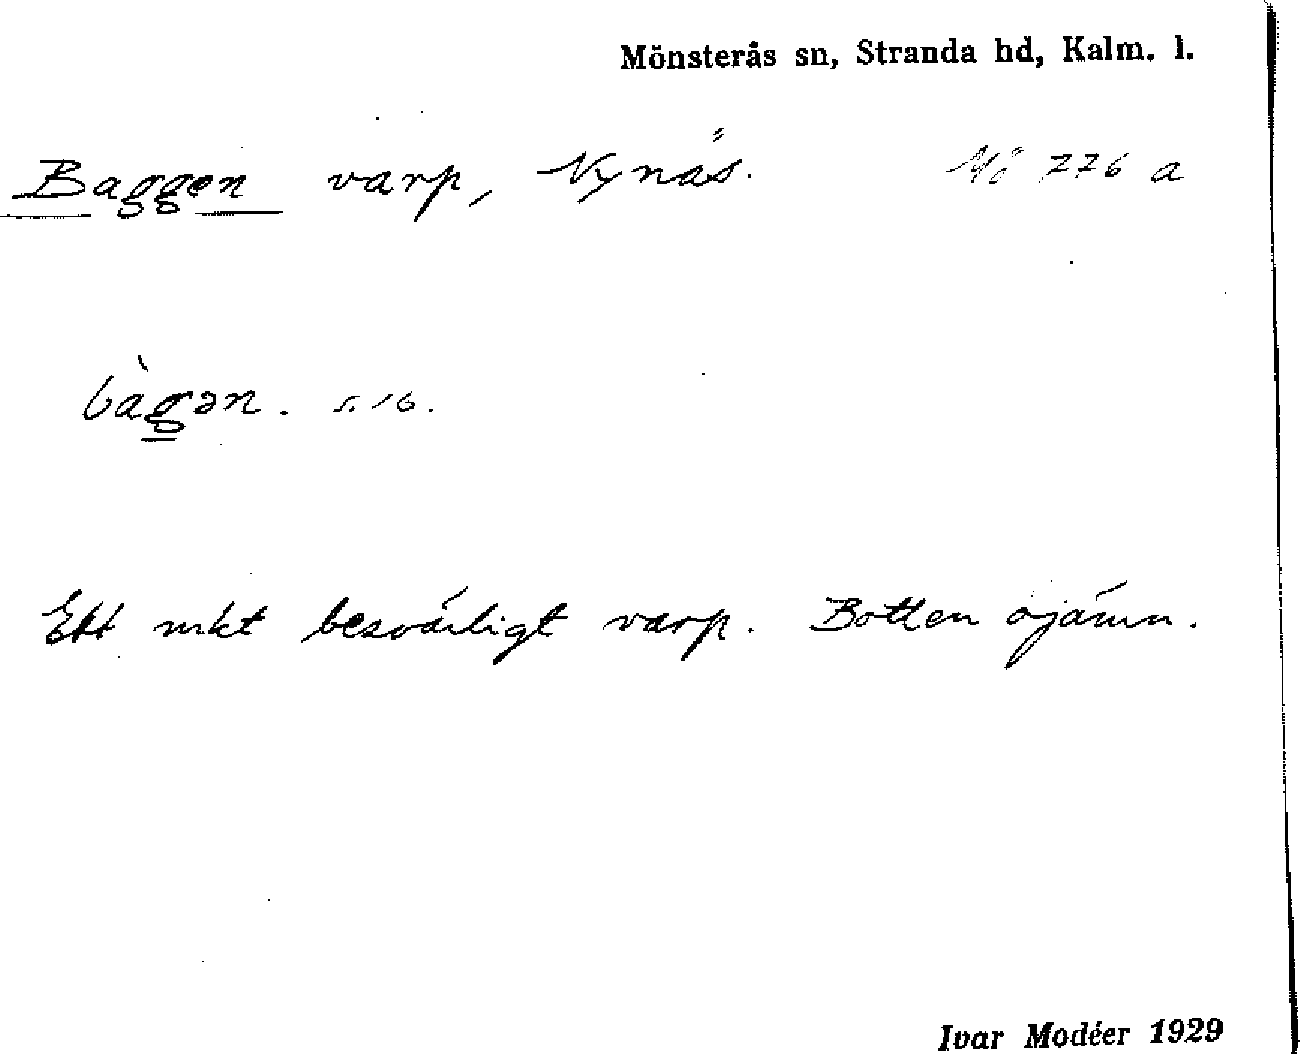 Mönsterås sn, Stranda hd, Kalm. l.
Baggen varp, Nynäs. Mö 776 a
bàgən. s. 16.
Ett mkt besvärligt varp. Botten ojämn.
Ivar Modéer 1929